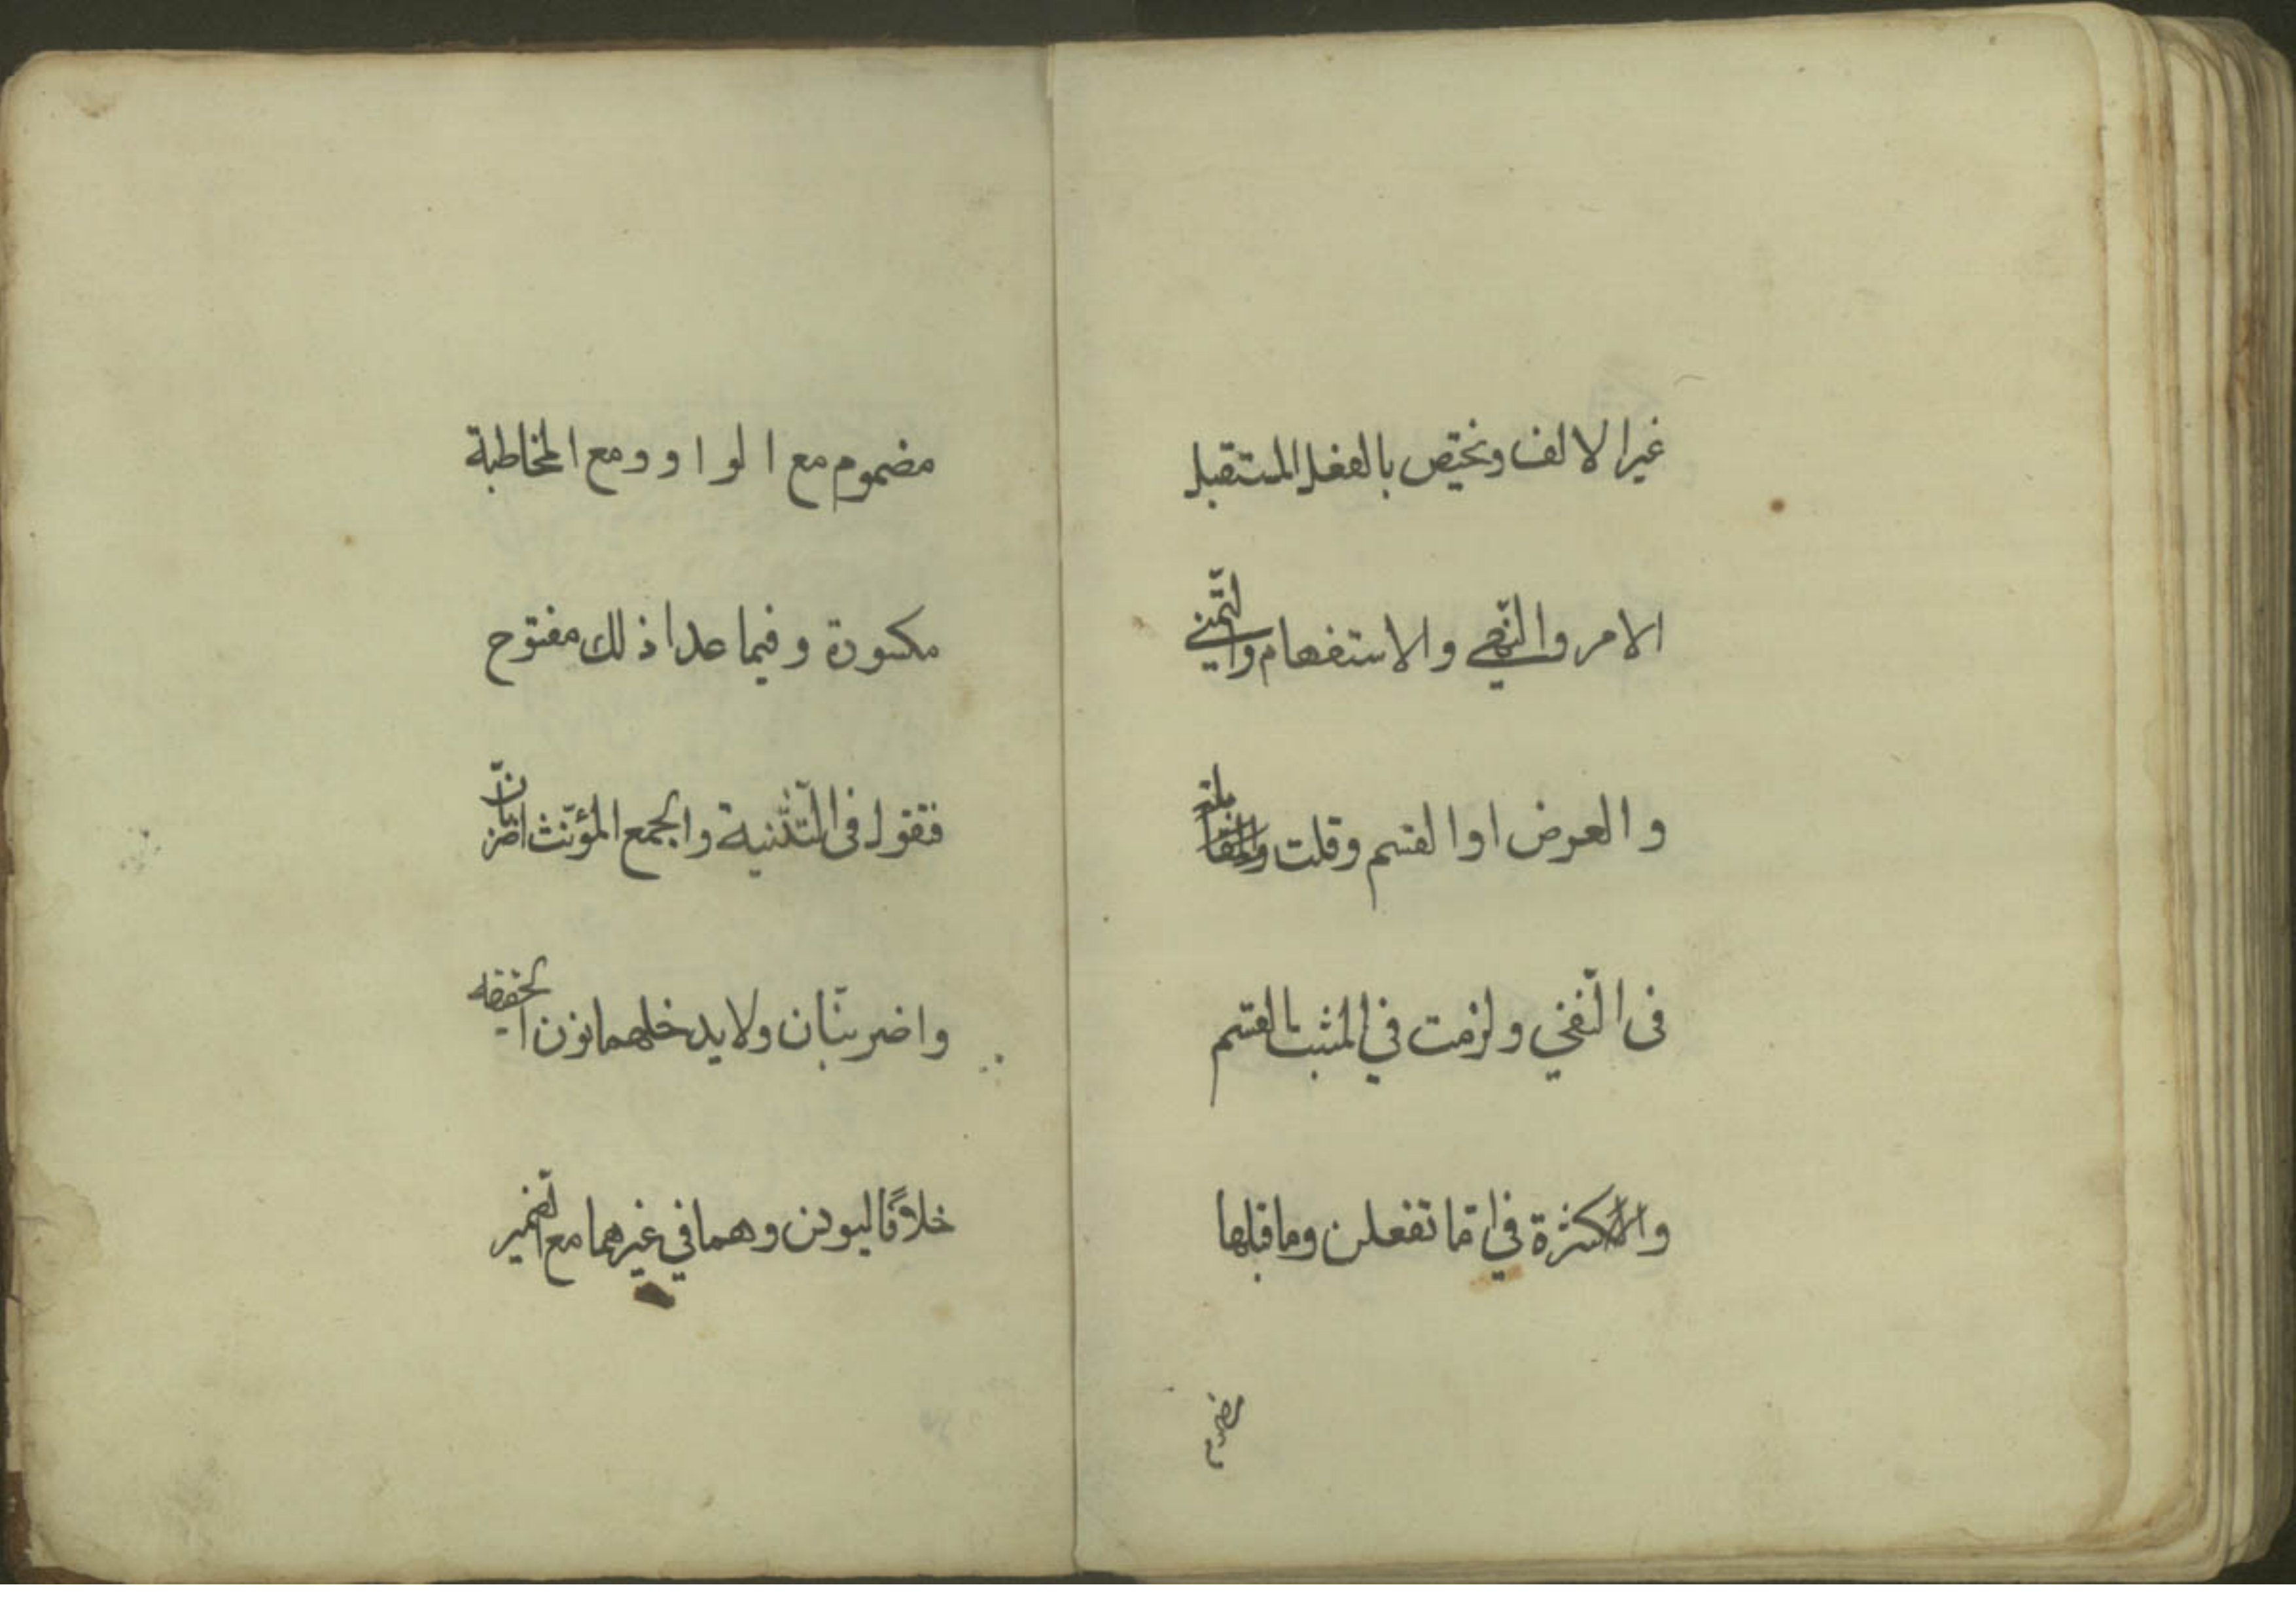 غير الالف وتختص بالفعل المستقبل
الامر والنّهي والاستفهام والتّمني
والعرض او القسم وقلت
فى النّفي ولزمت في المثبت القسم
والاكثرة في امّا تفعلن وما قبلها
مضموم
مضموم مع الواو ومع المخاطبة
مكسورة وفيما عدا ذلك مفتوح
فتقول فى التّثنية والجمع المؤنّث اضربانّ
واضربنّان ولا يدخلهما نون الخفيفه
خلافًا ليونس وهما في غيرهما مع الضّمير